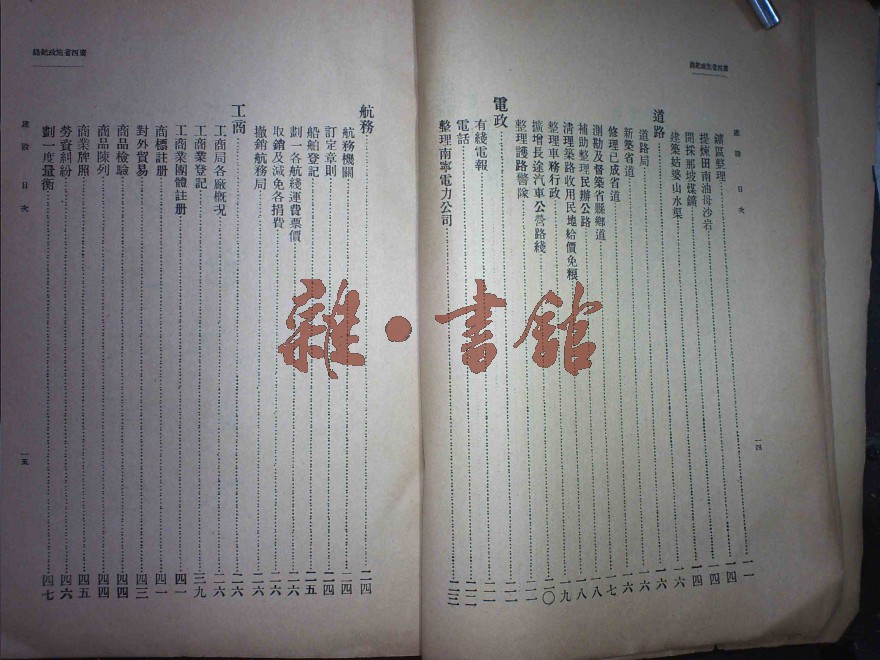 廣西省施政紀錄
建設 目次
一四
鑛區整理……一一
提楝田南油母沙岩……一四
開採那坡煤鑛……一四
建築姑婆山水渠……一四
道路……一六
道路局……一六
新築省道……一六
修理已成省道……一六
測勘及督築省縣鄉道……一七
補助整理民辦公路……一八
清理築路收用民地給價免糧……一八
整理車務行政……一九
擴增長途汽車公營路綫……二〇
整理護路警隊……二一
電政……二一
有綫電報……二一
電話……二二
整理南寧電力公司……二三
廣西省施政紀錄
航務……二四
航務機關……二四
訂定章則……二四
船舶登記……二五
劃一各航綫運費票價……二六
取銷及減免各捐費……二六
撤銷航務局……二六
工商……二六
工商局各廠概况……二六
工商業登記……三九
工商業團體註册……四一
商標註册……四一
對外貿易……四三
商品檢驗……四四
商品陳列……四四
商業牌照……四五
勞資糾紛……四六
劃一度量衡……四七
建設 目次
一五
雜·書館